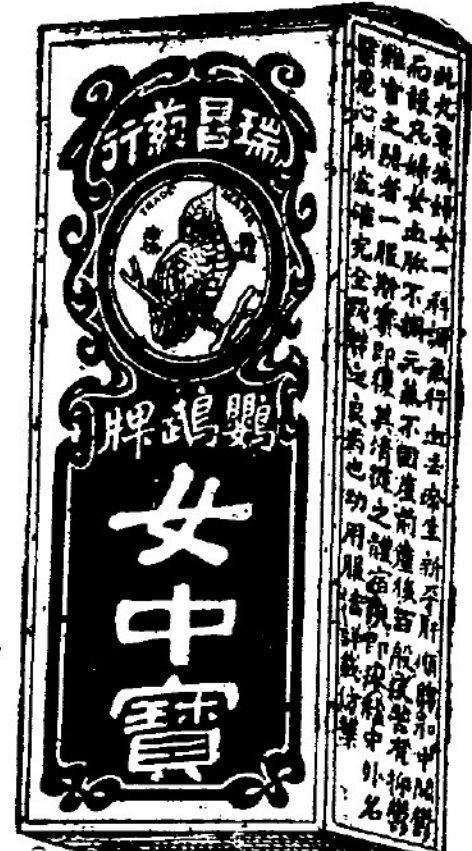 瑞昌葯行
TRADE MARK
鸚鵡牌
女中寶
此丸專 婦女一科調氣行血去瘀生新平肝順 和中開鬱
而設凡婦女血脉不調元氣不固產前產後百般疾苦有抑鬱
難言之隱者一服斯寶即復其清健之體宿 即 經中外名
醫悉心研究確完全 之良葯也功用服法詳載仿單